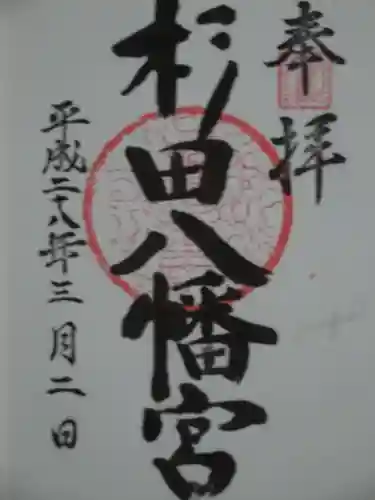 奉拝
杉田八幡宮
平成二十八年三月二日